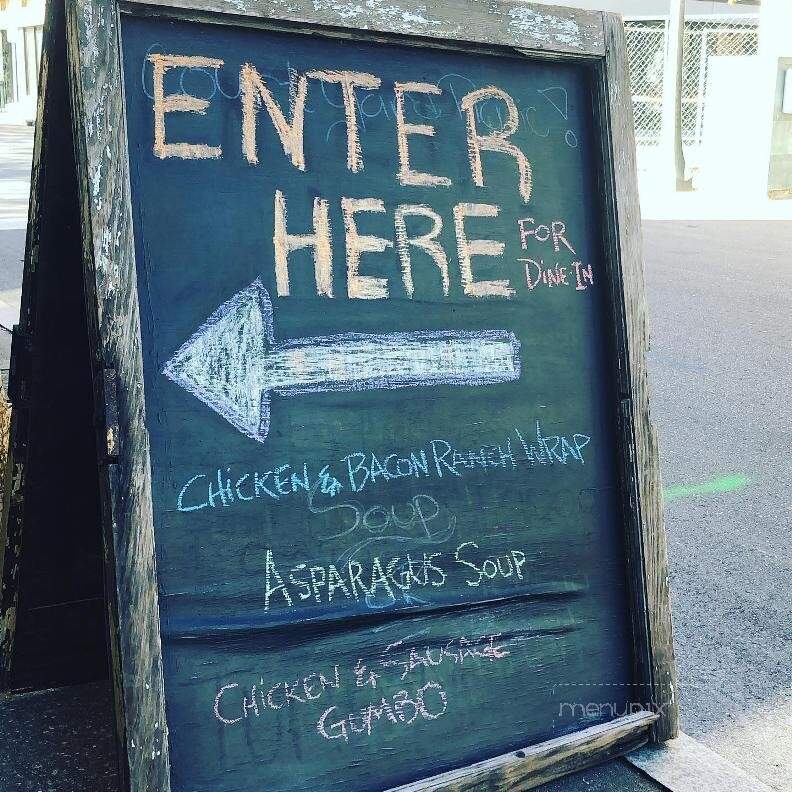 ENTER
HERE
FOR
DINE-IN
CHICKEN & BACON RANCH WRAP
SOUP
ASPARAGUS SOUP
CHICKEN & SAUSAGE
GUMBO
menupix